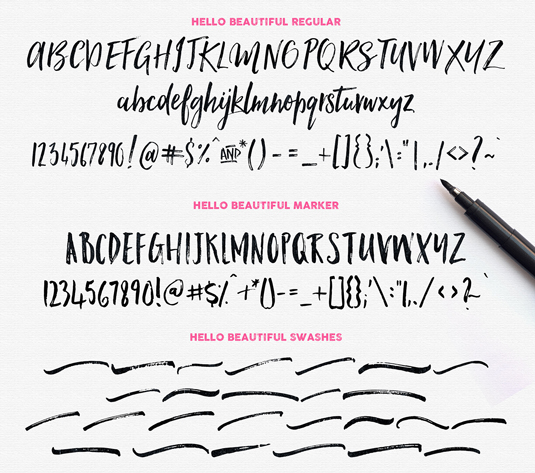 HELLO BEAUTIFUL REGULAR
ABCDEFGHIJKLMNOPQRSTUVWXYZ
abcdefghijklmnopqrstuvwxyz
1234567890!@#$%^AND*()-=_+[]{};'\:"|,./<>?~`
HELLO BEAUTIFUL MARKER
ABCDEFGHIJKLMNOPQRSTUVWXYZ
1234567890!@#$%^+*()-=_+[]{};'\:"|,./<>?~`
HELLO BEAUTIFUL SWASHES